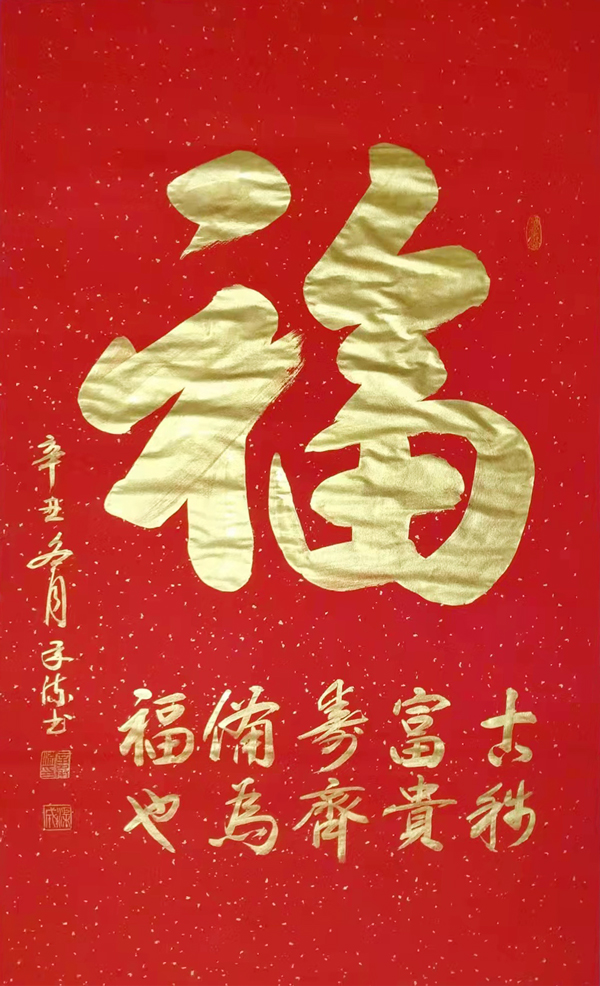 福
古称
富貴
寿齊
備為
福也
辛丑冬月书